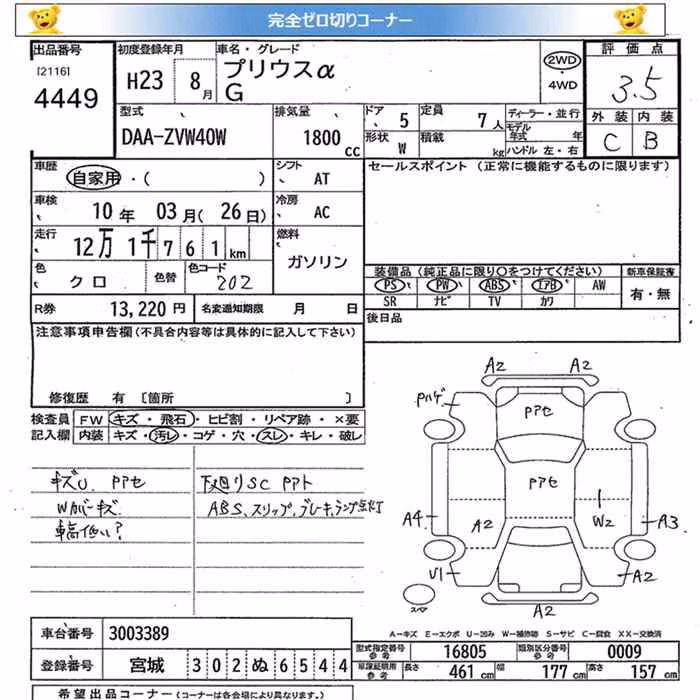 完全ゼロ切りコーナー
出品番号 初度登録年月 車名・グレード 評価点
[2116] H23 8月 プリウスα 2WD
4449 G ・4WD 3.5
型式 排気量 ドア 定員 ディーラー・並行 外装 内装
DAA-ZVW40W 1800 CC 5 7人 モデル年式 年 C B
形状 W 積載 kg ハンドル 左・右
車歴 シフト セールスポイント (正常に機能するものに限ります)
自家用・( ) AT
車検 冷房
10年 03月(26日) AC
走行 燃料
12万1千761km ガソリン
色 色替 色コード 装備品(純正品に限り○をつけてください) 新車保証書
クロ 202 PS PW ABS エアB AW 有・無
R券 13,220円 名変通知期限 月 日 SR ナビ TV カワ
注意事項申告欄(不具合内容等は具体的に記入して下さい) 後日品
修復歴 有 [箇所 ]
検査員 FW キズ・飛石・ヒビ割・リペア跡・×要
記入欄 内装 キズ・汚レ・コゲ・穴・スレ・キレ・破レ
キズU、PPアセ 下廻りSC PPアト
Wカバーキズ ABS、スリップ、ブレーキ、ランプ点灯
車高低い?
A2 A2
Pハゲ PPアセ
PPアセ
A4 A2 W2 A3
U1 A2
スペア A2
A-キズ E-エクボ U-凹み W-補修跡 S-サビ C-腐食 XX-交換済
車台番号 3003389
型式指定番号 参考 16805 類別区分番号 参考 0009
登録番号 宮城 302ぬ6544
車庫証明用 参考 長さ 461cm 幅 177cm 高さ 157cm
希望出品コーナー(コーナーは各会場により異なります。)